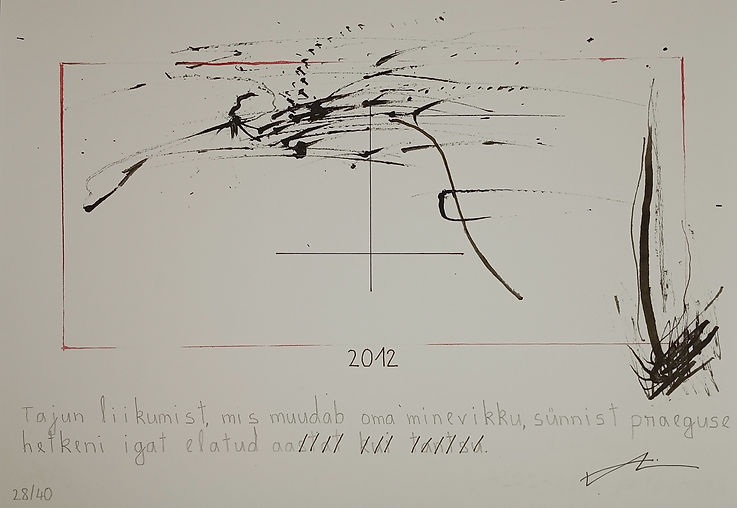 2012
Tajun liikumist, mis muudab oma minevikku, sünnist praeguse
hetkeni igat elatud
28/40